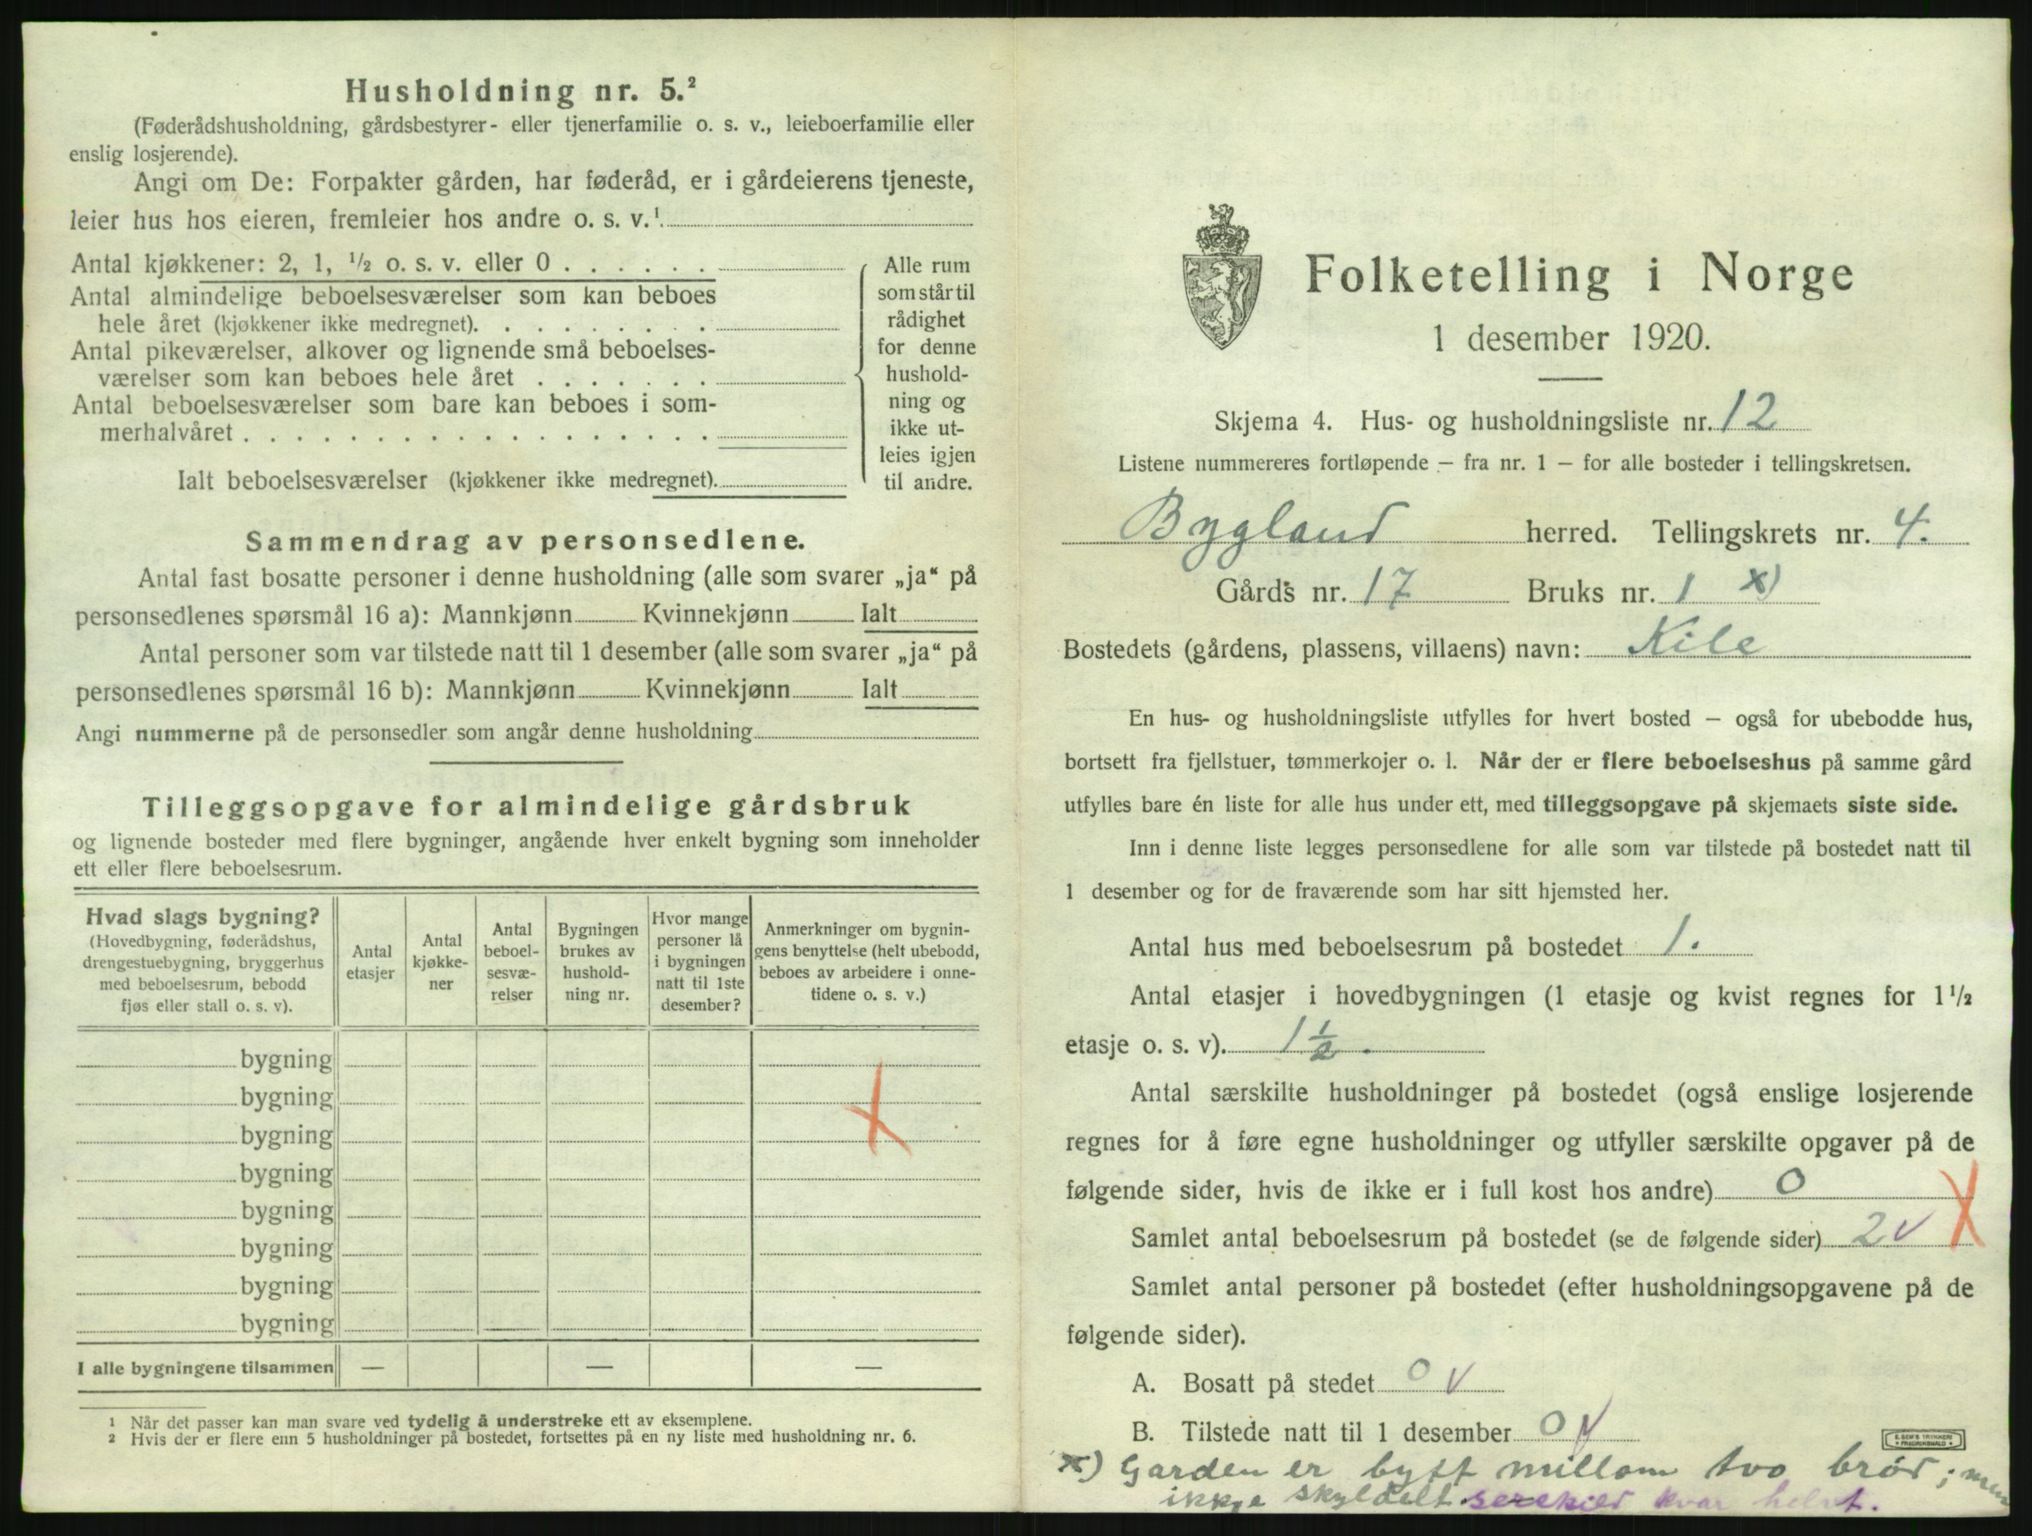 Husholdning nr. 5.²
(Føderådshusholdning, gårdsbestyrer- eller tjenerfamilie o. s. v., leieboerfamilie eller
enslig losjerende).
Angi om De: Forpakter gården, har føderåd, er i gårdeierens tjeneste,
leier hus hos eieren, fremleier hos andre o. s. v.¹
Antal kjøkkener: 2, 1, ½ o. s. v. eller 0 . . . . . .
Antal almindelige beboelsesværelser som kan beboes
hele året (kjøkkener ikke medregnet). . . . . . . . .
Antal pikeværelser, alkover og lignende små beboelses-
værelser som kan beboes hele året . . . . . . .
Antal beboelsesværelser som bare kan beboes i som-
merhalvåret . . . . . . . . . . . . . . . . . .
Ialt beboelsesværelser (kjøkkener ikke medregnet).
Alle rum
som står til
rådighet
for denne
hushold-
ning og
ikke ut-
leies igjen
til andre.
Sammendrag av personsedlene.
Antal fast bosatte personer i denne husholdning (alle som svarer „ja“ på
personsedlenes spørsmål 16 a): Mannkjønn Kvinnekjønn Ialt
Antal personer som var tilstede natt til 1 desember (alle som svarer „ja“ på
personsedlenes spørsmål 16 b): Mannkjønn Kvinnekjønn Ialt
Angi nummerne på de personsedler som angår denne husholdning
Tilleggsopgave for almindelige gårdsbruk
og lignende bosteder med flere bygninger, angående hver enkelt bygning som inneholder
ett eller flere beboelsesrum.
Hvad slags bygning?
(Hovedbygning, føderådshus,
drengestuebygning, bryggerhus
med beboelsesrum, bebodd
fjøs eller stall o. s. v).
Antal
etasjer
Antal
kjøkke-
ner
Antal
beboel-
sesvæ-
relser
Bygningen
brukes av
hushold-
ning nr.
Hvor mange
personer lå
i bygningen
natt til 1ste
desember?
Anmerkninger om bygnin-
gens benyttelse (helt ubebodd,
beboes av arbeidere i onne-
tidene o. s. v.)
bygning
bygning
bygning
bygning
bygning
bygning
bygning
bygning
I alle bygningene tilsammen — — —
¹ Når det passer kan man svare ved tydelig å understreke ett av eksemplene.
² Hvis der er flere enn 5 husholdninger på bostedet, fortsettes på en ny liste med husholdning nr. 6.
Folketelling i Norge
1 desember 1920.
Skjema 4. Hus- og husholdningsliste nr. 12
Listene nummereres fortløpende – fra nr. 1 – for alle bosteder i tellingskretsen.
Bygland herred. Tellingskrets nr. 4.
Gårds nr. 17 Bruks nr. 1 x)
Bostedets (gårdens, plassens, villaens) navn: Kile
En hus- og husholdningsliste utfylles for hvert bosted – også for ubebodde hus,
bortsett fra fjellstuer, tømmerkojer o. l. Når der er flere beboelseshus på samme gård
utfylles bare én liste for alle hus under ett, med tilleggsopgave på skjemaets siste side.
Inn i denne liste legges personsedlene for alle som var tilstede på bostedet natt til
1 desember og for de fraværende som har sitt hjemsted her.
Antal hus med beboelsesrum på bostedet 1.
Antal etasjer i hovedbygningen (1 etasje og kvist regnes for 1½
etasje o. s. v). 1½.
Antal særskilte husholdninger på bostedet (også enslige losjerende
regnes for å føre egne husholdninger og utfyller særskilte opgaver på de
følgende sider, hvis de ikke er i full kost hos andre) 0
Samlet antal beboelsesrum på bostedet (se de følgende sider) 2 v
Samlet antal personer på bostedet (efter husholdningsopgavene på de
følgende sider).
A. Bosatt på stedet 0 v
B. Tilstede natt til 1 desember 0 v
x) Garden er bytt millom tvo brør; men
ikkje skyldelt serskild kvar helvt.